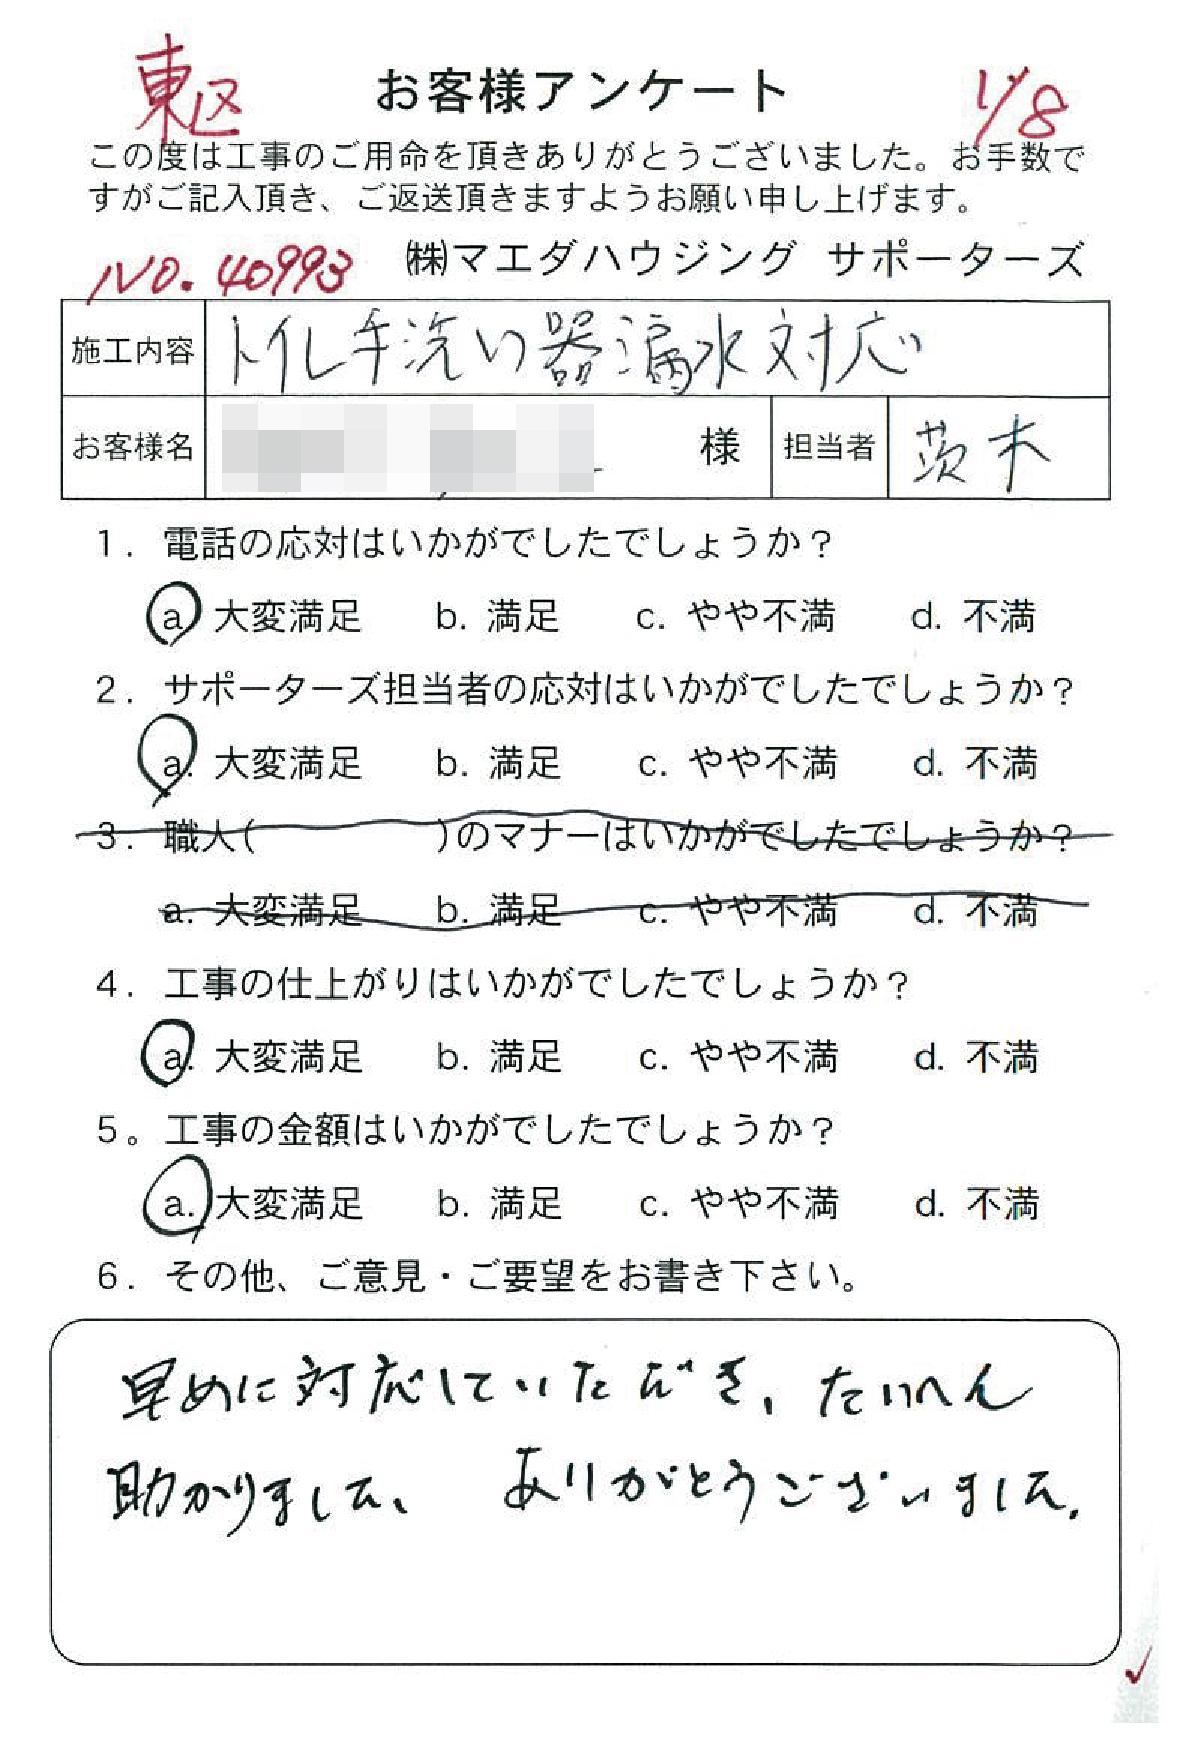 東区 お客様アンケート 1/8
この度は工事のご用命を頂きありがとうございました。お手数で
すがご記入頂き、ご返送頂きますようお願い申し上げます。
No.40993 ㈱マエダハウジング サポーターズ
施工内容 トイレ手洗い器漏水対応
お客様名 様 担当者 茨木
1. 電話の応対はいかがでしたでしょうか？
a. 大変満足 b. 満足 c. やや不満 d. 不満
2. サポーターズ担当者の応対はいかがでしたでしょうか？
a. 大変満足 b. 満足 c. やや不満 d. 不満
3. 職人( )のマナーはいかがでしたでしょうか？
a. 大変満足 b. 満足 c. やや不満 d. 不満
4. 工事の仕上がりはいかがでしたでしょうか？
a. 大変満足 b. 満足 c. やや不満 d. 不満
5。工事の金額はいかがでしたでしょうか？
a. 大変満足 b. 満足 c. やや不満 d. 不満
6. その他、ご意見・ご要望をお書き下さい。
早めに対応していただき、たいへん
助かりました、 ありがとうございました.